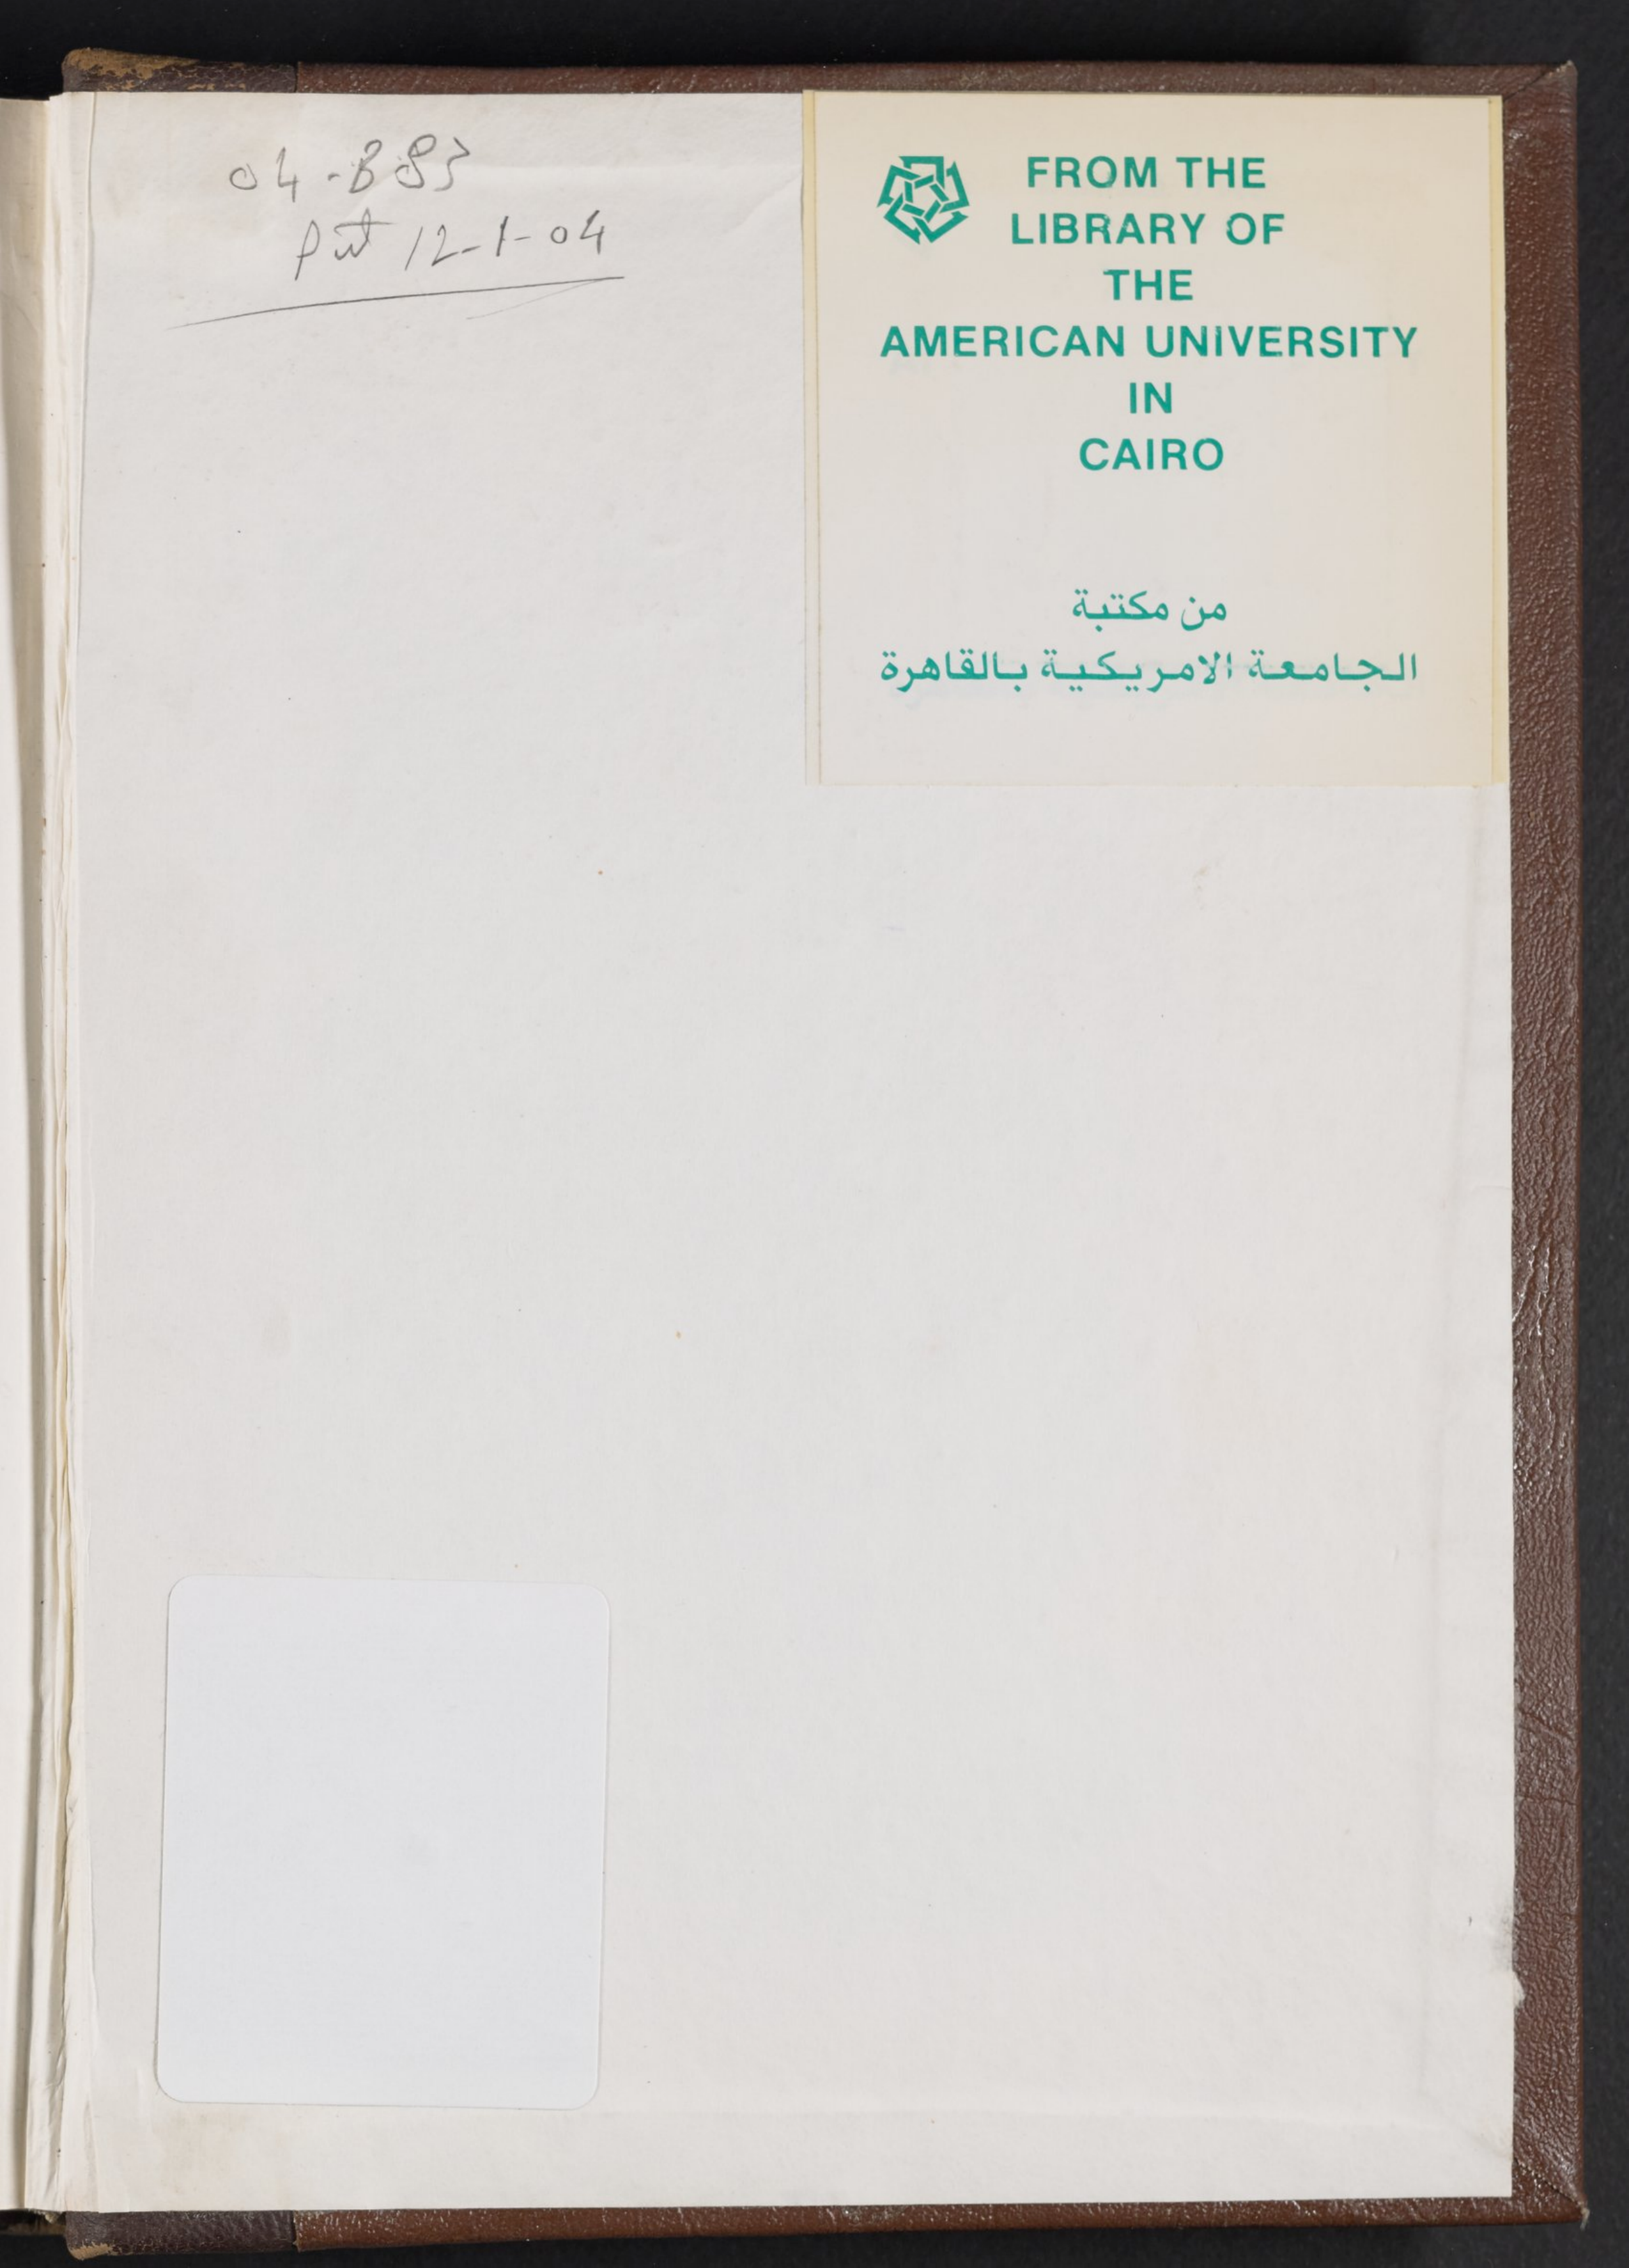 04-B83
Put 12-1-04
FROM THE
LIBRARY OF
THE
AMERICAN UNIVERSITY
IN
CAIRO
من مكتبة
الجامعة الامريكية بالقاهرة